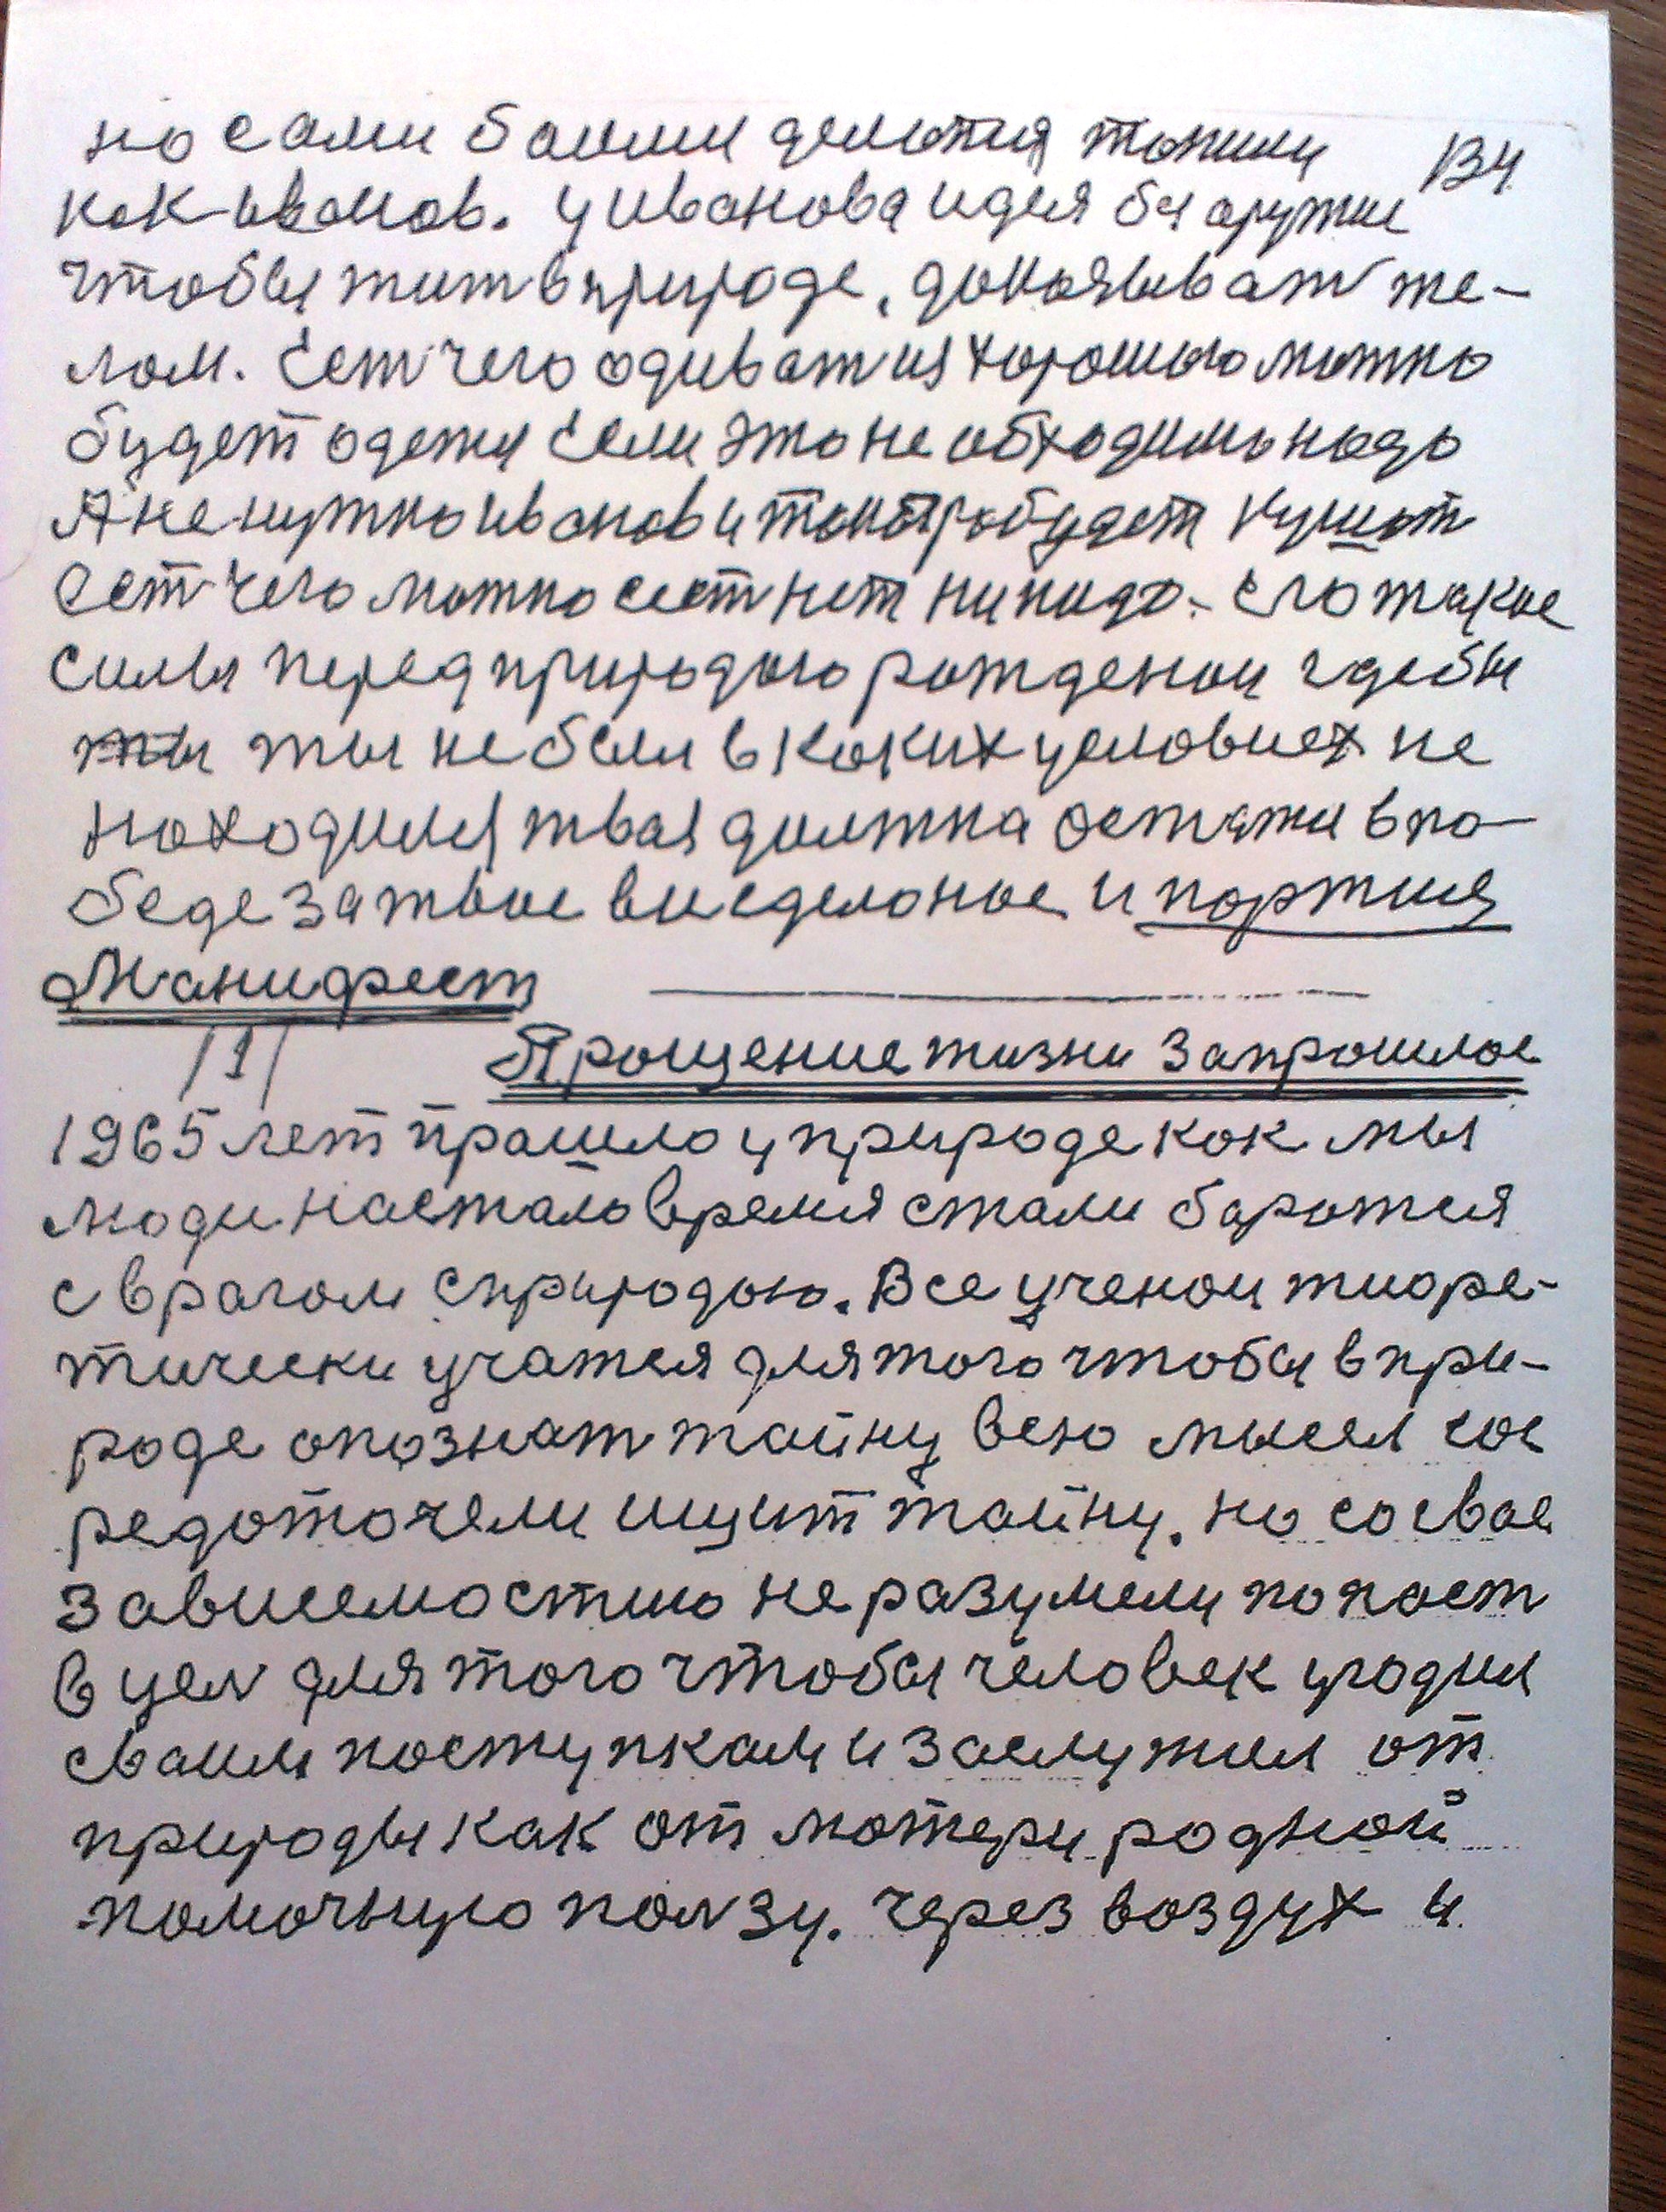 но сами боилис делотся токими 134.
как иванов. у иванова идея без аружие
чтобы жит в природе, доказыват те-
лом. Ест чего одиватся хорошыго можно
будет одежи если это необходимо надо
А не нужно иванов и так пробудет кушат
Ест чего можно сест нет нинадо. его такие
силы перед природою рожденои где бы
ты не был в каких условиех не
находился твая должна остатся в по-
беде за твое всие сделаное и партия
Манифест
/1/ Прощение жизни за прошлое
1965 лет прашло у природе как мы
люди настало время стали баротся
с врагом с природою. Все ученои тиоре-
тически учатся для того чтобы в при-
роде опознат тайну всю мысел сос
редоточели ищит тайну. но со свае
зависемостию не разумели попаст
в цел для того чтобы человек угодил
сваим поступкам и заслужил от
природы как от матери родной
помочную ползу. через воздух и